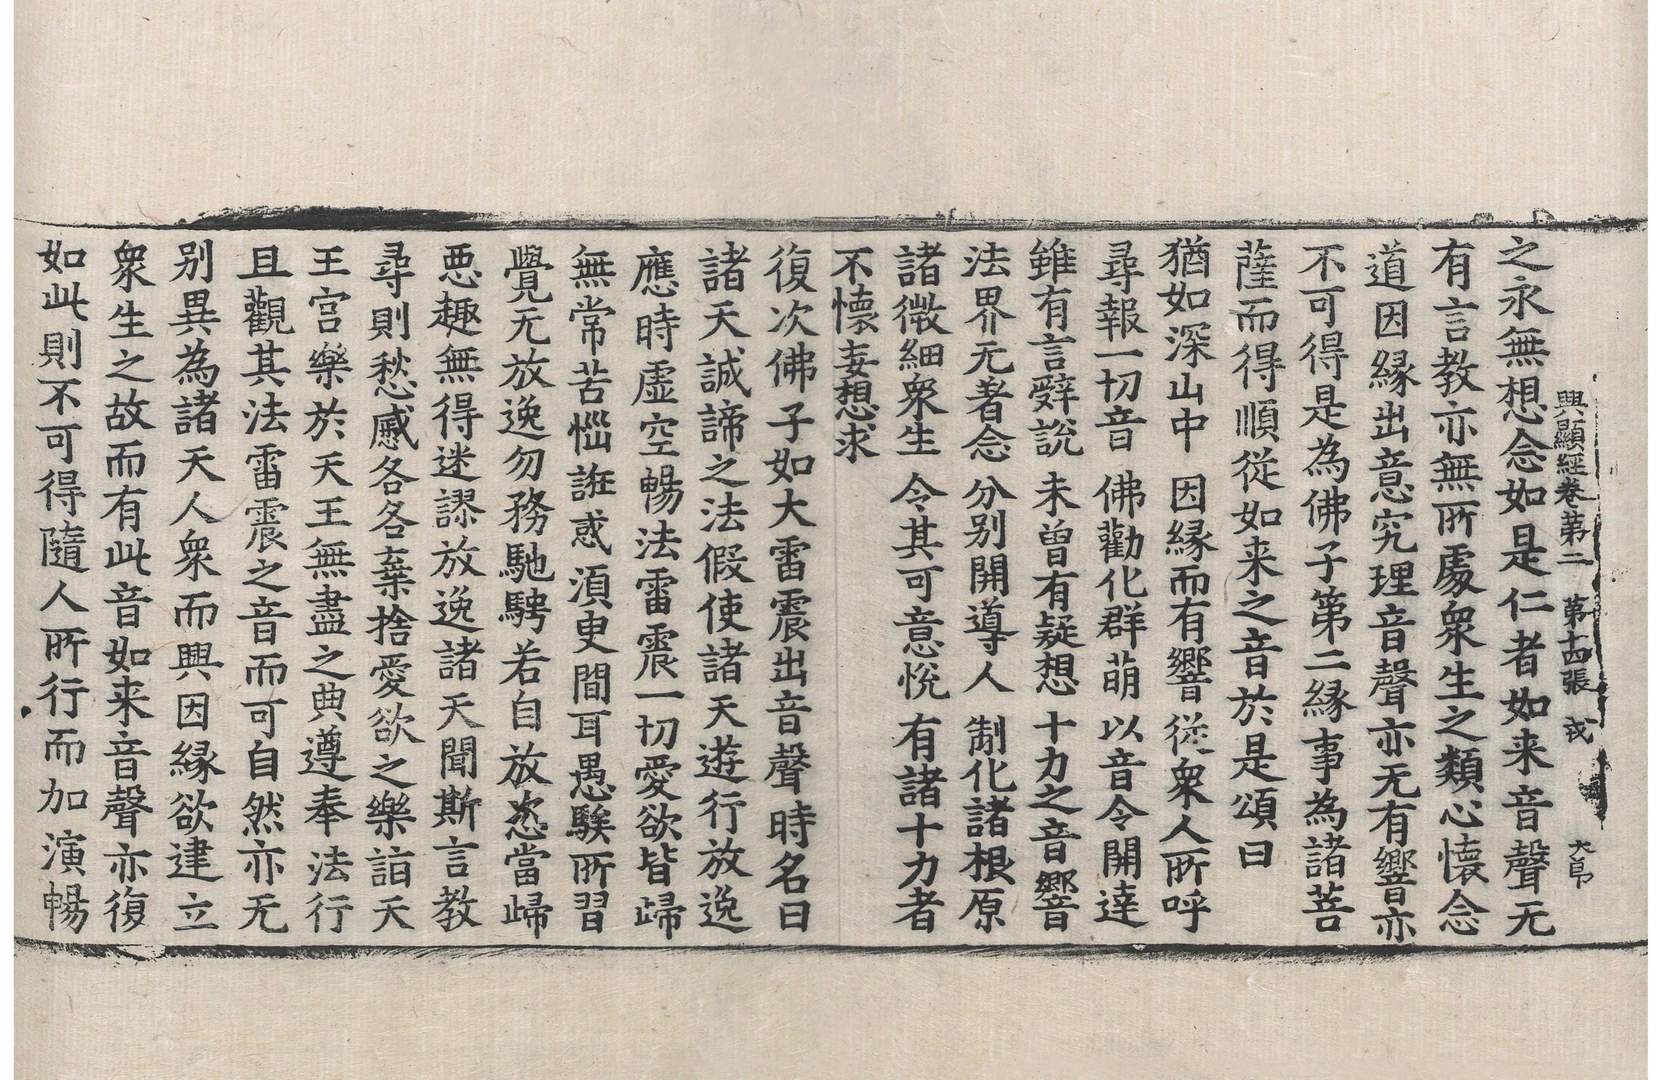 興顯經卷第二 第十四張 戎 大昂
之永無想念如是仁者如来音聲无
有言教亦無所處衆生之類心懷念
道因緣出意究理音聲亦无有響亦
不可得是為佛子第二緣事為諸菩
薩而得順從如来之音於是頌曰
猶如深山中 因緣而有響 從衆人所呼
尋報一切音 佛勸化群萌 以音令開達
雖有言辭說 未曽有疑想 十力之音響
法界无著念 分别開導人 制化諸根原
諸微細衆生 令其可意悅 有諸十力者
不懷妄想求
復次佛子如大雷震出音聲時名曰
諸天誠諦之法假使諸天遊行放逸
應時虛空暢法雷震一切愛欲皆歸
無常苦惱誑惑湏臾間耳愚騃所習
覺无放逸勿務馳騁若自放恣當歸
悪趣無得迷謬放逸諸天聞斯言教
尋則愁慼各各棄捨愛欲之樂詣天
王宮樂於天王無盡之典遵奉法行
且觀其法雷震之音而可自然亦无
别異為諸天人衆而興因緣欲建立
衆生之故而有此音如来音聲亦復
如此則不可得隨人所行而加演暢